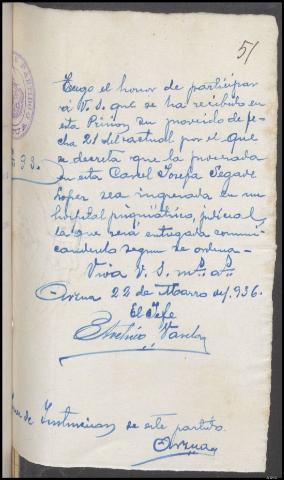 51
Tengo el honor de participar
a V.S. que se ha recibido en
esta Prision su proveido de fe-
cha 21 del actual por el que
se decreta que la procesada
en esta Carcel Josefa Segade
Lopez sea ingresada en un
hospital psiquiátrico, judicial,
la que será entregada comuni-
candoselo segun se ordena-
Viva V.S. ms. as.
Arzua 22 de Marzo de 1.936.
El Jefe
de Instruccion de este partido.
Arzua